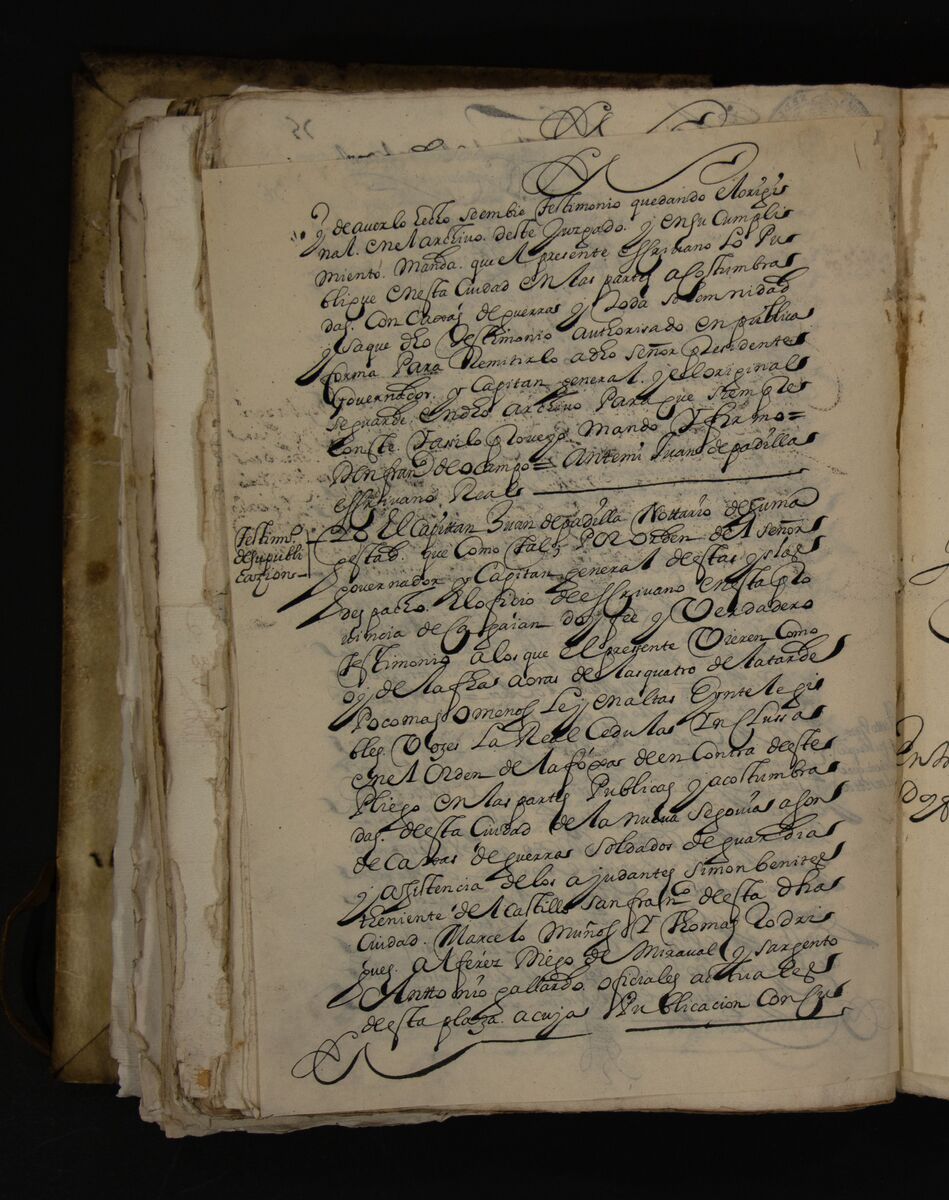 y de averlo hecho se embie Testimonio quedando el origi
nal en el archivo deste Juzgado. y en su Cumpli
miento. Manda. que el presente essrivano Lo Pu
blique en esta Ciudad en las partes acostumbra
das. con Caxas de guerras y toda solemnidad
y saque dho Testimonio authorisado en publica
forma Para Remitirlo a dho señor Presidente
Governador. y Capitan general. y el original
se guarde en dho archivo Para que siempre
Conste. Y asi lo Proveyo. Mando Y firmo=
Don franco de ocampo= Antemi Juan de padilla
essrivano Real
Testimo
de su publi
cazion
Yo El Capittan Juan de padilla Nottario de su ma
gestad. que como tal y Por orden del señor
governador y Capitan general destas yslas
despacho. El ofisio de essrivano en esta pro
vincia de Cagaian doy fee y Verdadero
Testimonio a los que el presente Vieren Como
oy de la fha a oras de las quatro de la tarde
Poco mas o menos ley en altas E ynte legi
bles. Vozes La Real Cedula Ynclussa
en el orden de la foxas de en contra deste
Pliego en las partes Publicas y acostumbra
das. de esta Ciudad de la nueva segovia a son
de Caxas de guerras Soldados de guardia
y assistencia de los ajudantes simon benites
theniente del Castillo san franco de esta dha
Ciudad. Marcelo Muños Y Thomas Rodri
gues. alferez Diego de Miraval y sargento
Antto nio gallardo. ofiçiales actuales
de esta plaza. a cuja Publicacion Con Cu